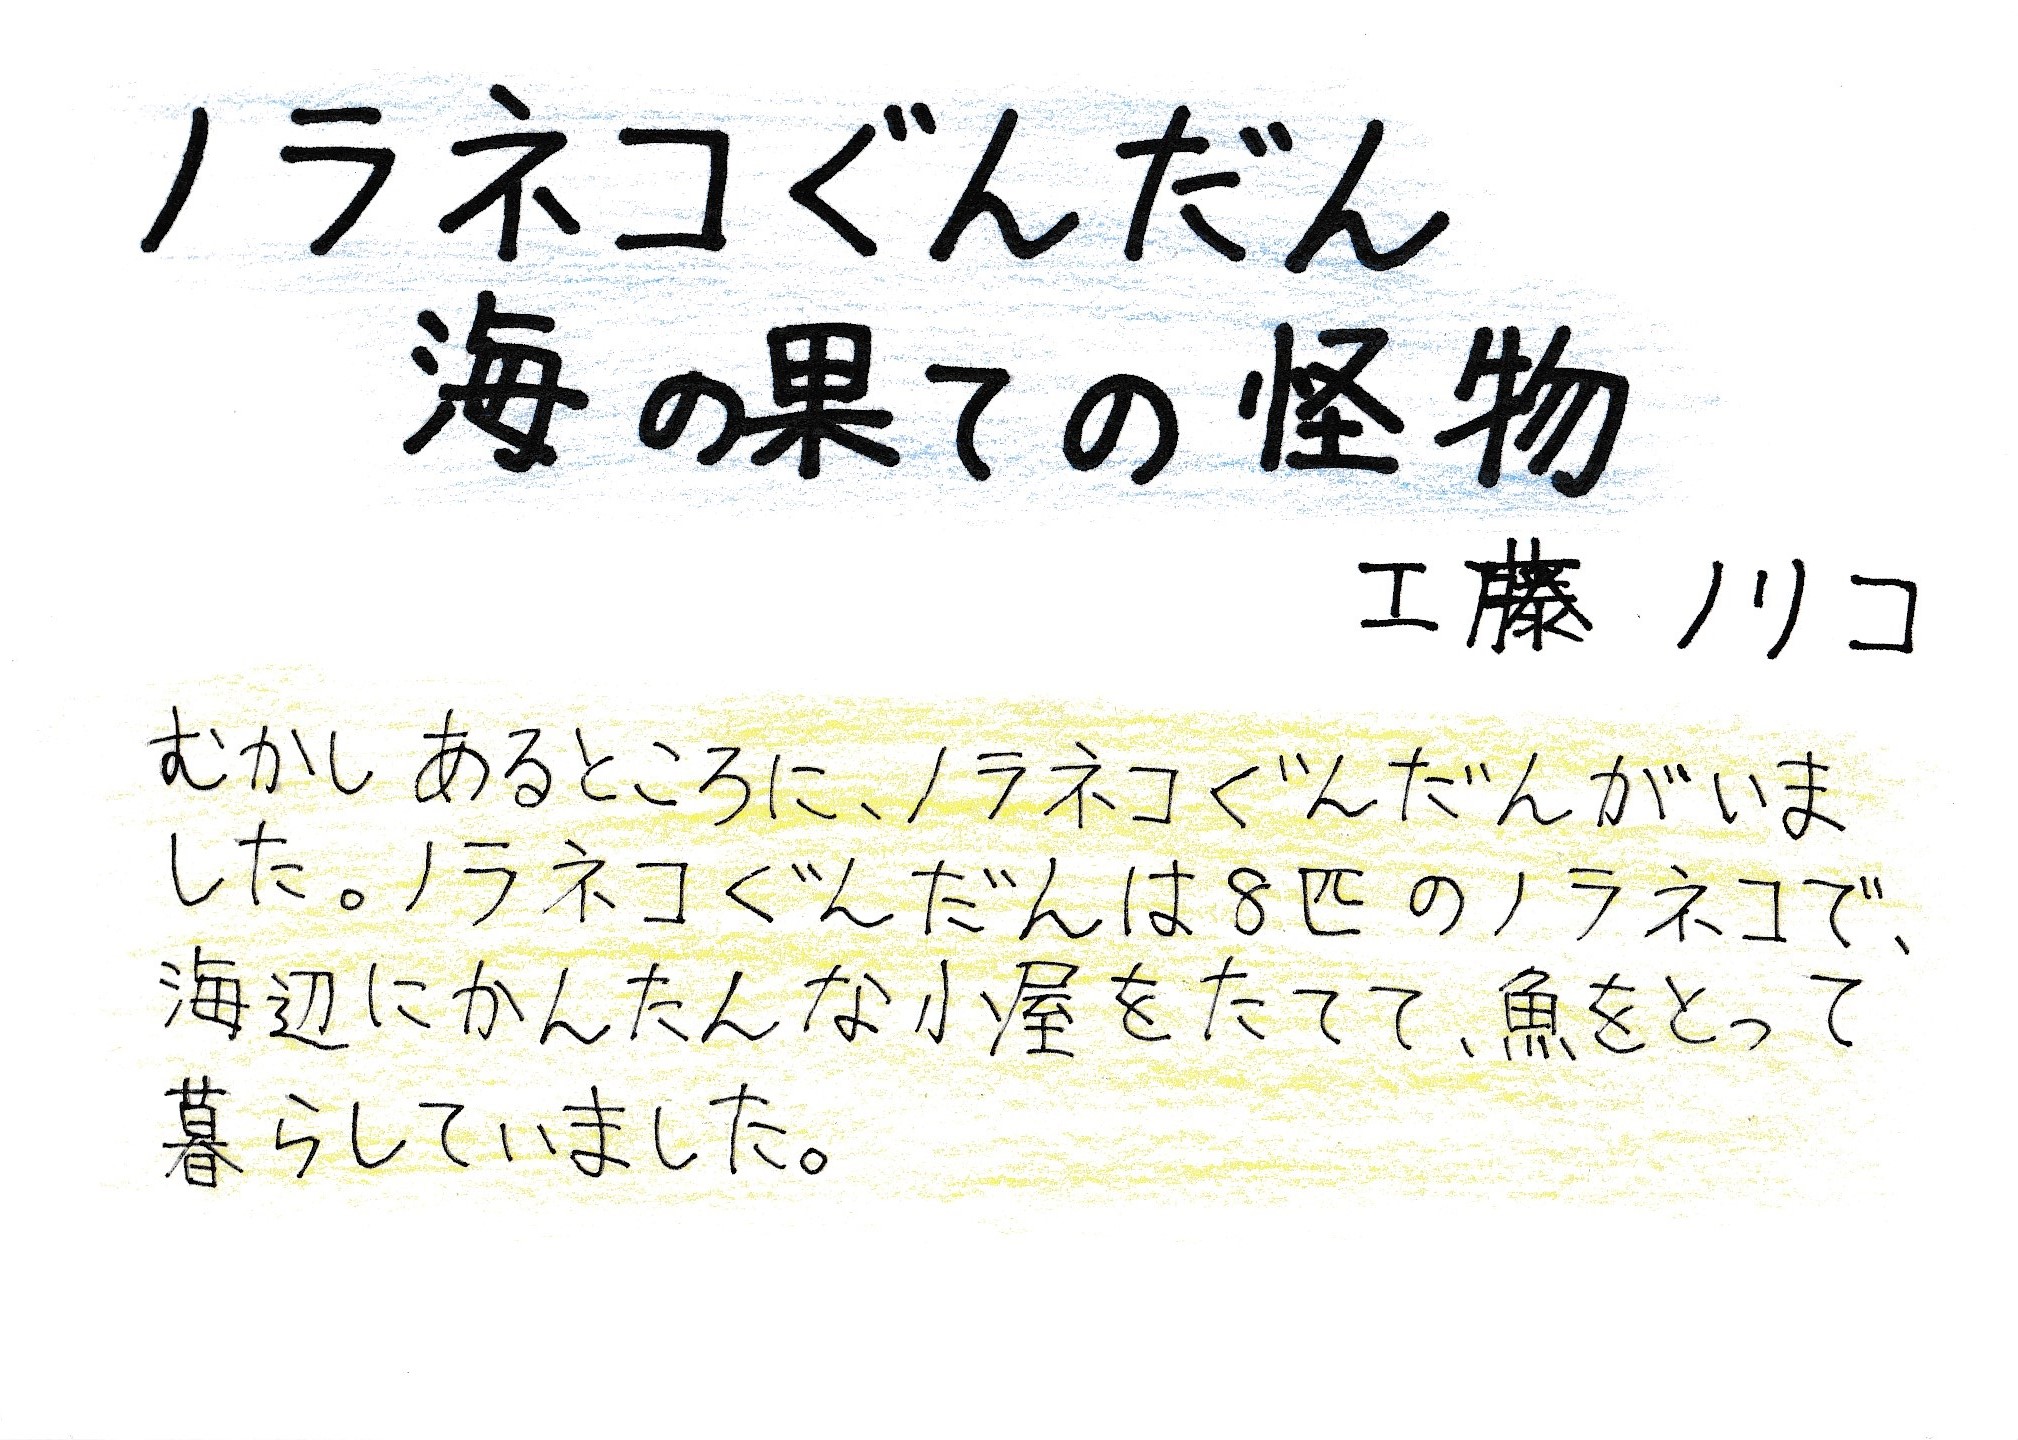 ノラネコぐんだん
海の果ての怪物
工藤 ノリコ
むかし あるところに、ノラネコぐんだんがいま
した。ノラネコぐんだんは8匹のノラネコで、
海辺にかんたんな小屋をたてて、魚をとって
暮らしていました。